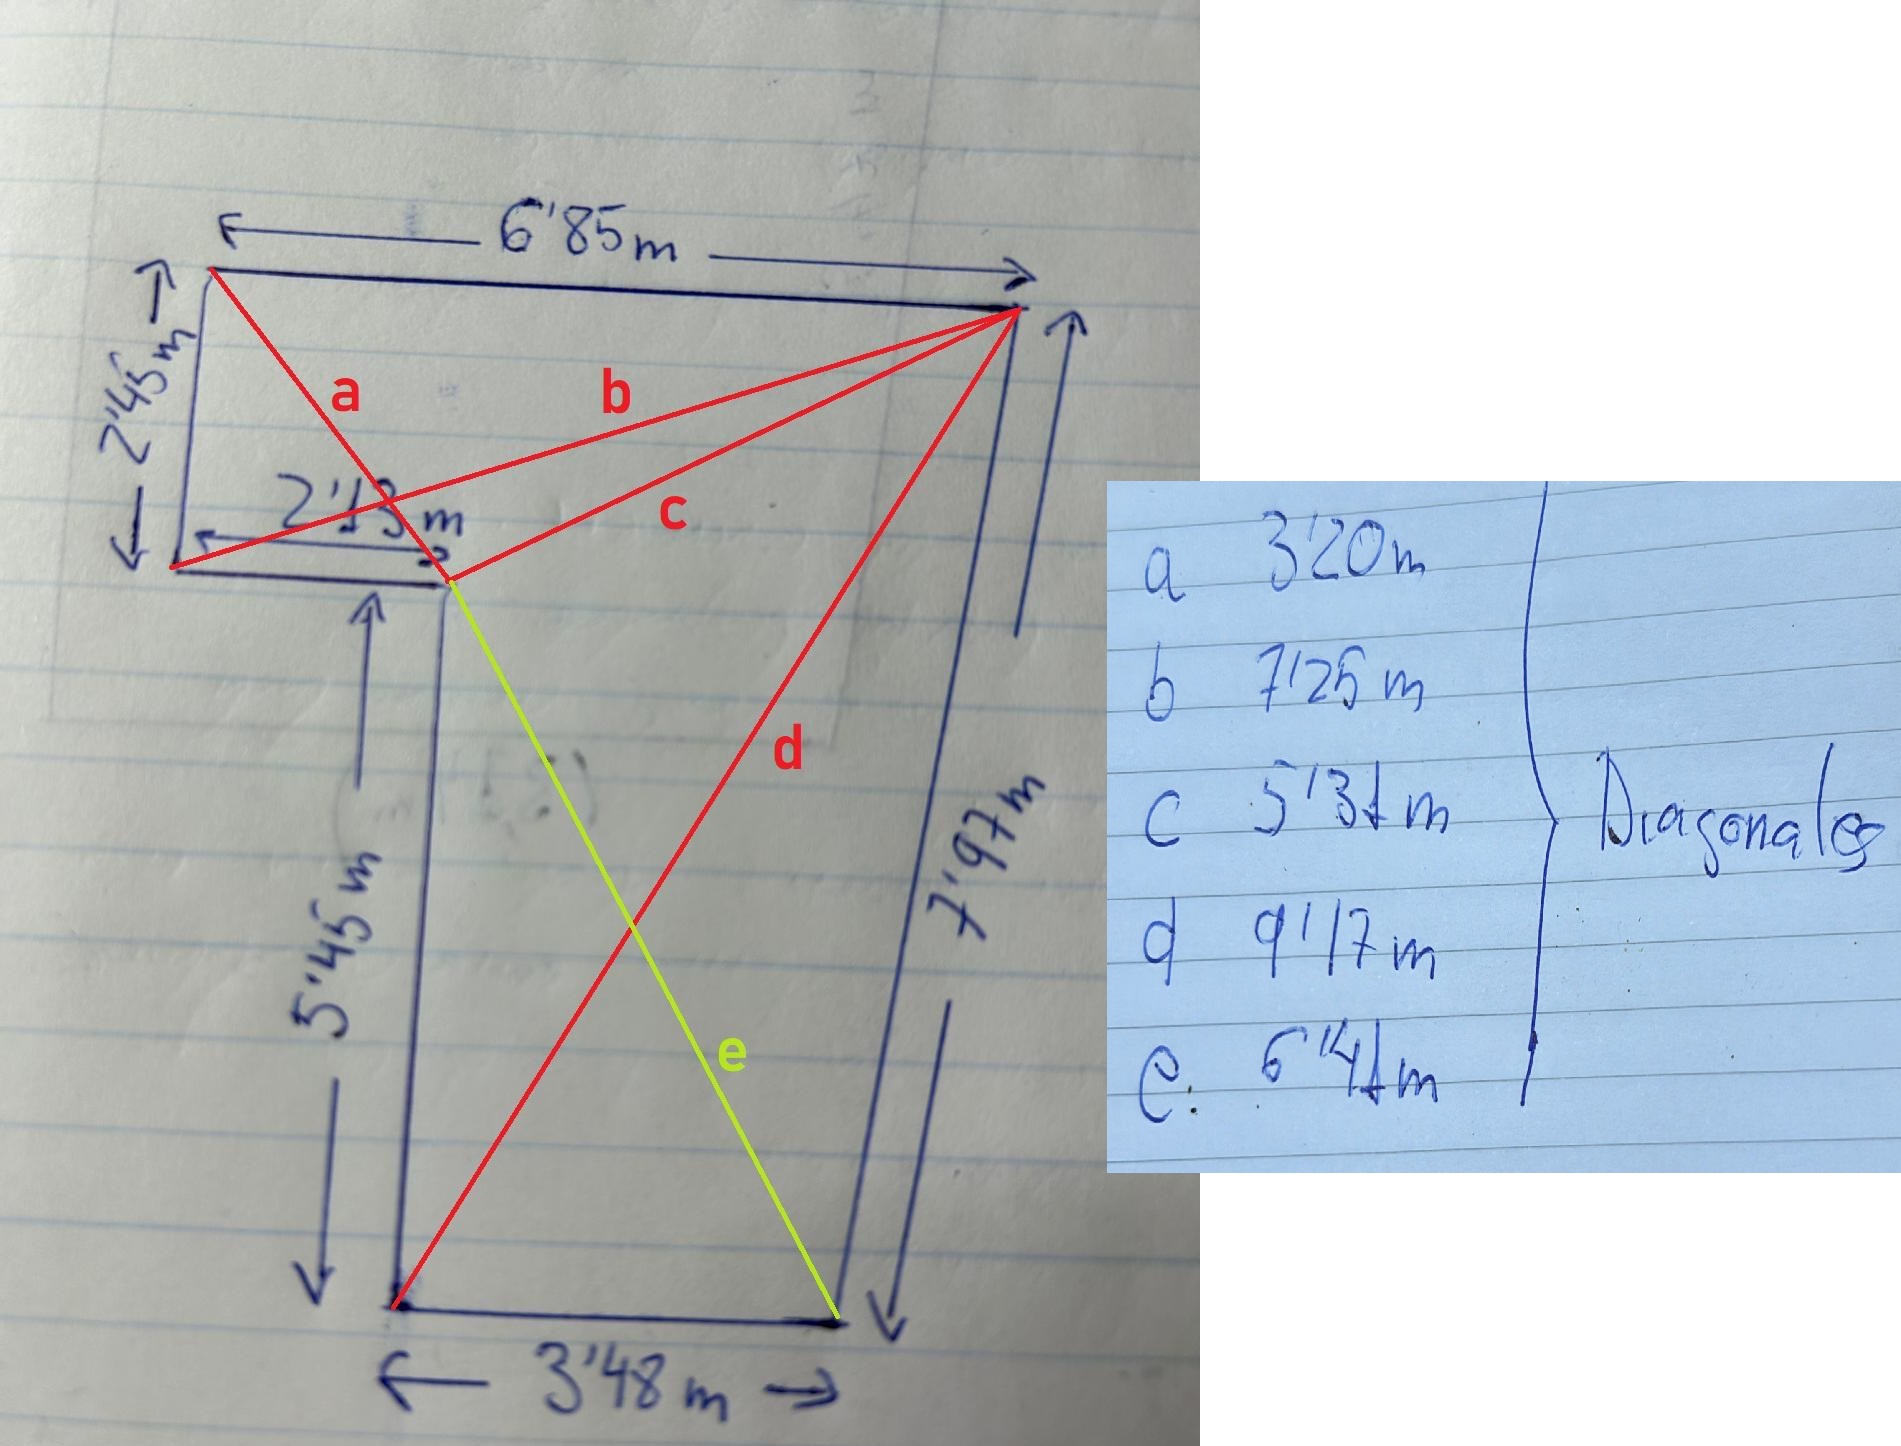 6'85m
2'45m
a
b
2'13 m
c
d
7'97m
5'45m
e
3'48m
a 3'20m
b 7'25m
c 5'31m
d 9'17m
e. 6'41m
Diagonales